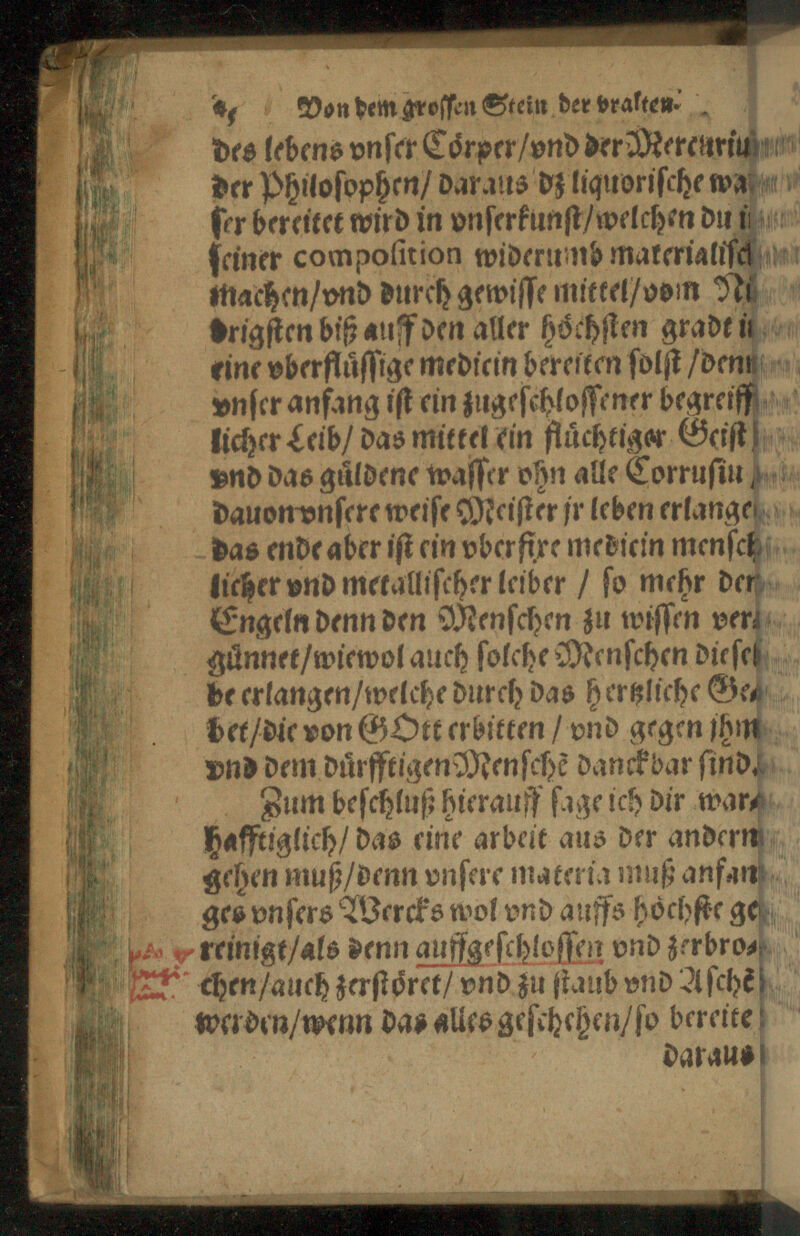 Von dem groſſen Stein der vralten
des lebens vnſer Cörper/vnd der Mercuriu
der Philoſophen/ daraus dz liquoriſche waſ
ſer bereitet wird in vnſerkunſt/welchen du i
ſeiner compoſition widerumb materialiſch
machen/vnd durch gewiſſe mittel/vom Ni
drigſten biß auff den aller höchſten gradt i
eine vberflüſſige medicin bereiten ſolſt /denn
vnſer anfang iſt ein zugeſchloſſener begreiff
licher Leib/ das mittel ein flüchtiger Geiſt
vnd das güldene waſſer ohn alle Corruſiu
dauon vnſere weiſe Meiſter jr leben erlange
das ende aber iſt ein vberfixe medicin menſch
licher vnd metalliſcher leiber / ſo mehr den
Engeln denn den Menſchen zu wiſſen ver⸗
günnet/wiewol auch ſolche Menſchen dieſel
be erlangen/welche durch das hertzliche Ge⸗
bet/die von GOtt erbitten / vnd gegen jhm
vnd dem dürfftigen Menſchẽ danckbar ſind.
Zum beſchluß hierauff ſage ich dir war⸗
hafftiglich/ das eine arbeit aus der andern
gehen muß/denn vnſere materia muß anfan
ges vnſers Wercks wol vnd auffs höchſte ge
reinigt/als denn auffgeſchloſſen vnd zerbro⸗
chen/auch zerſtöret/ vnd zu ſtaub vnd Aſchẽ
werden/wenn das alles geſchehen/ſo bereite
daraus